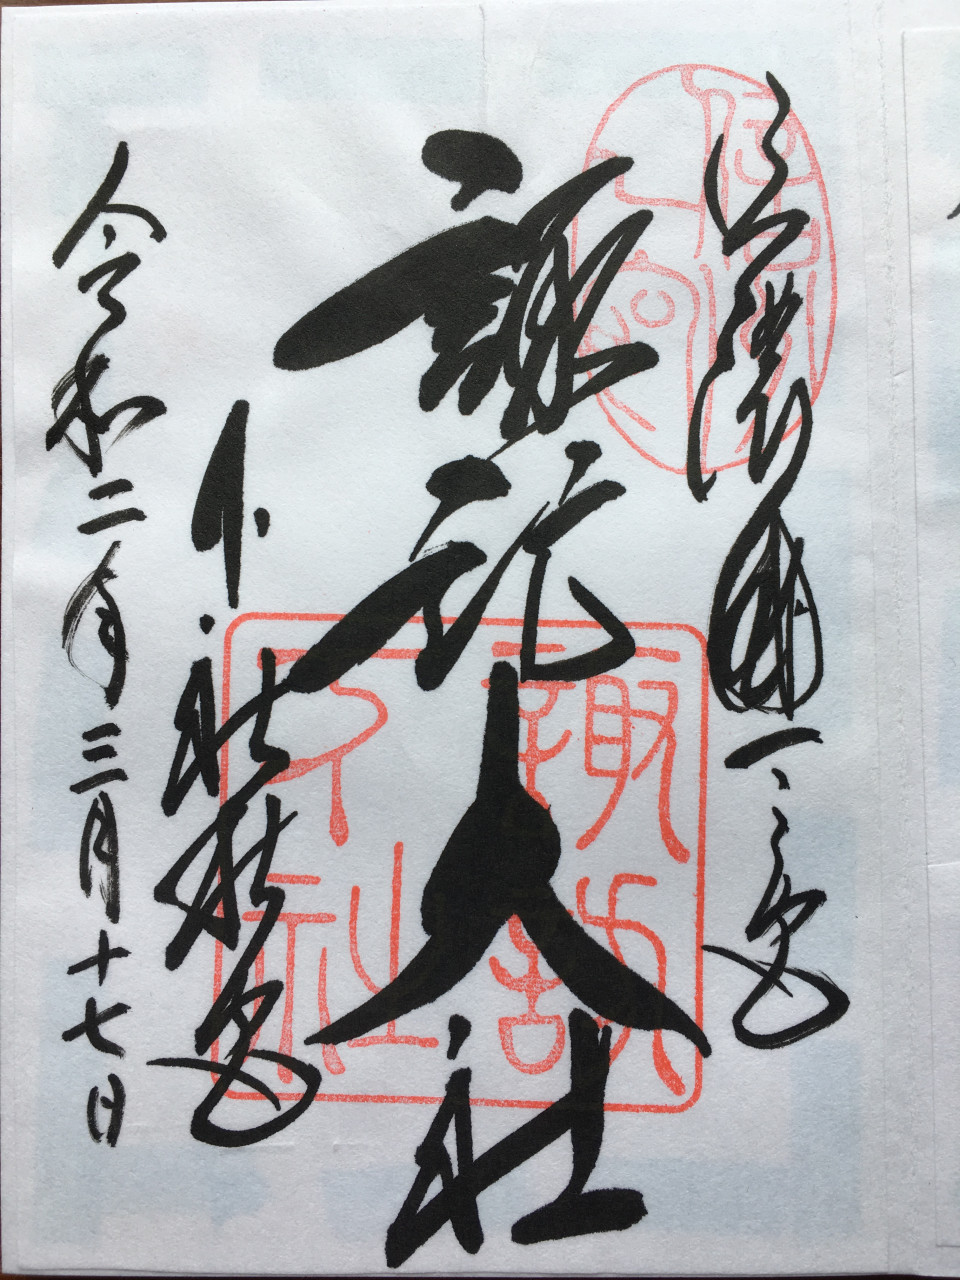 信濃國一之宮
諏訪大社
下社秋宮
令和二年三月十七日
諏訪
下社